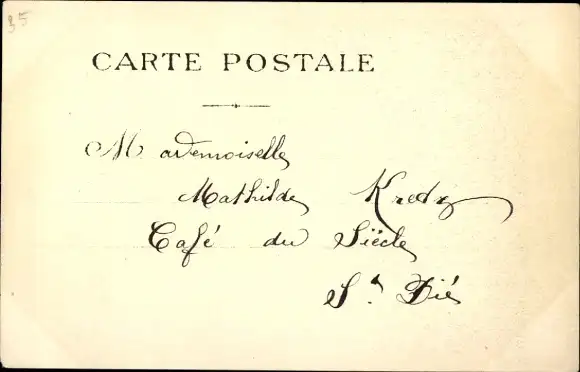 35
CARTE POSTALE
Mademoiselle
Mathilde
Café du Siècle
St. Dié